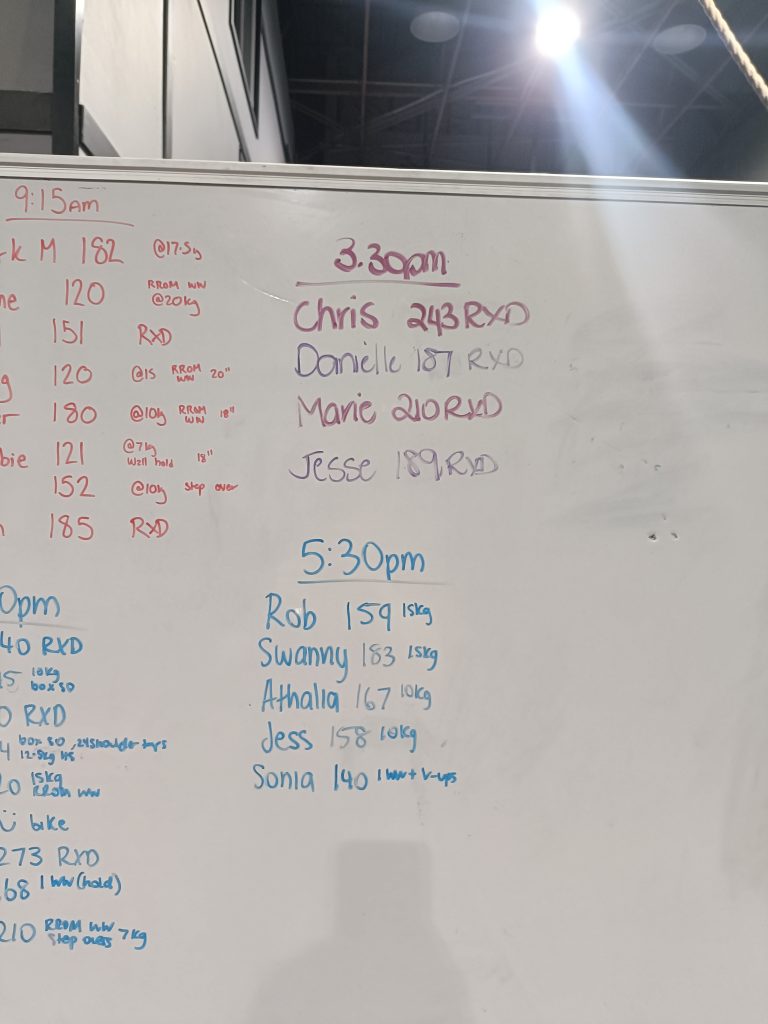 9:15AM
rk M 182 @17.5kg
ne 120 RROM WW @20kg
151 RXD
g 120 @15 RROM WW 20"
r 180 @10kg RROM WW 18"
bie 121 @7kg Wall hold 18"
152 @10kg Step over
185 RXD
3.30pm
Chris 243 RXD
Danielle 187 RXD
Marie 210 RXD
Jesse 189 RXD
0pm
40 RXD
5 10kg box so
0 RXD
4 box so, 24 shoulder taps 12.5kg
20 15kg RROM WW
bike
273 RXD
68 1 WW (hold)
210 RROM WW Step overs 7kg
5:30pm
Rob 159 15kg
Swanny 183 15kg
Athalia 167 10kg
Jess 158 10kg
Sonia 140 1 WW + V-ups